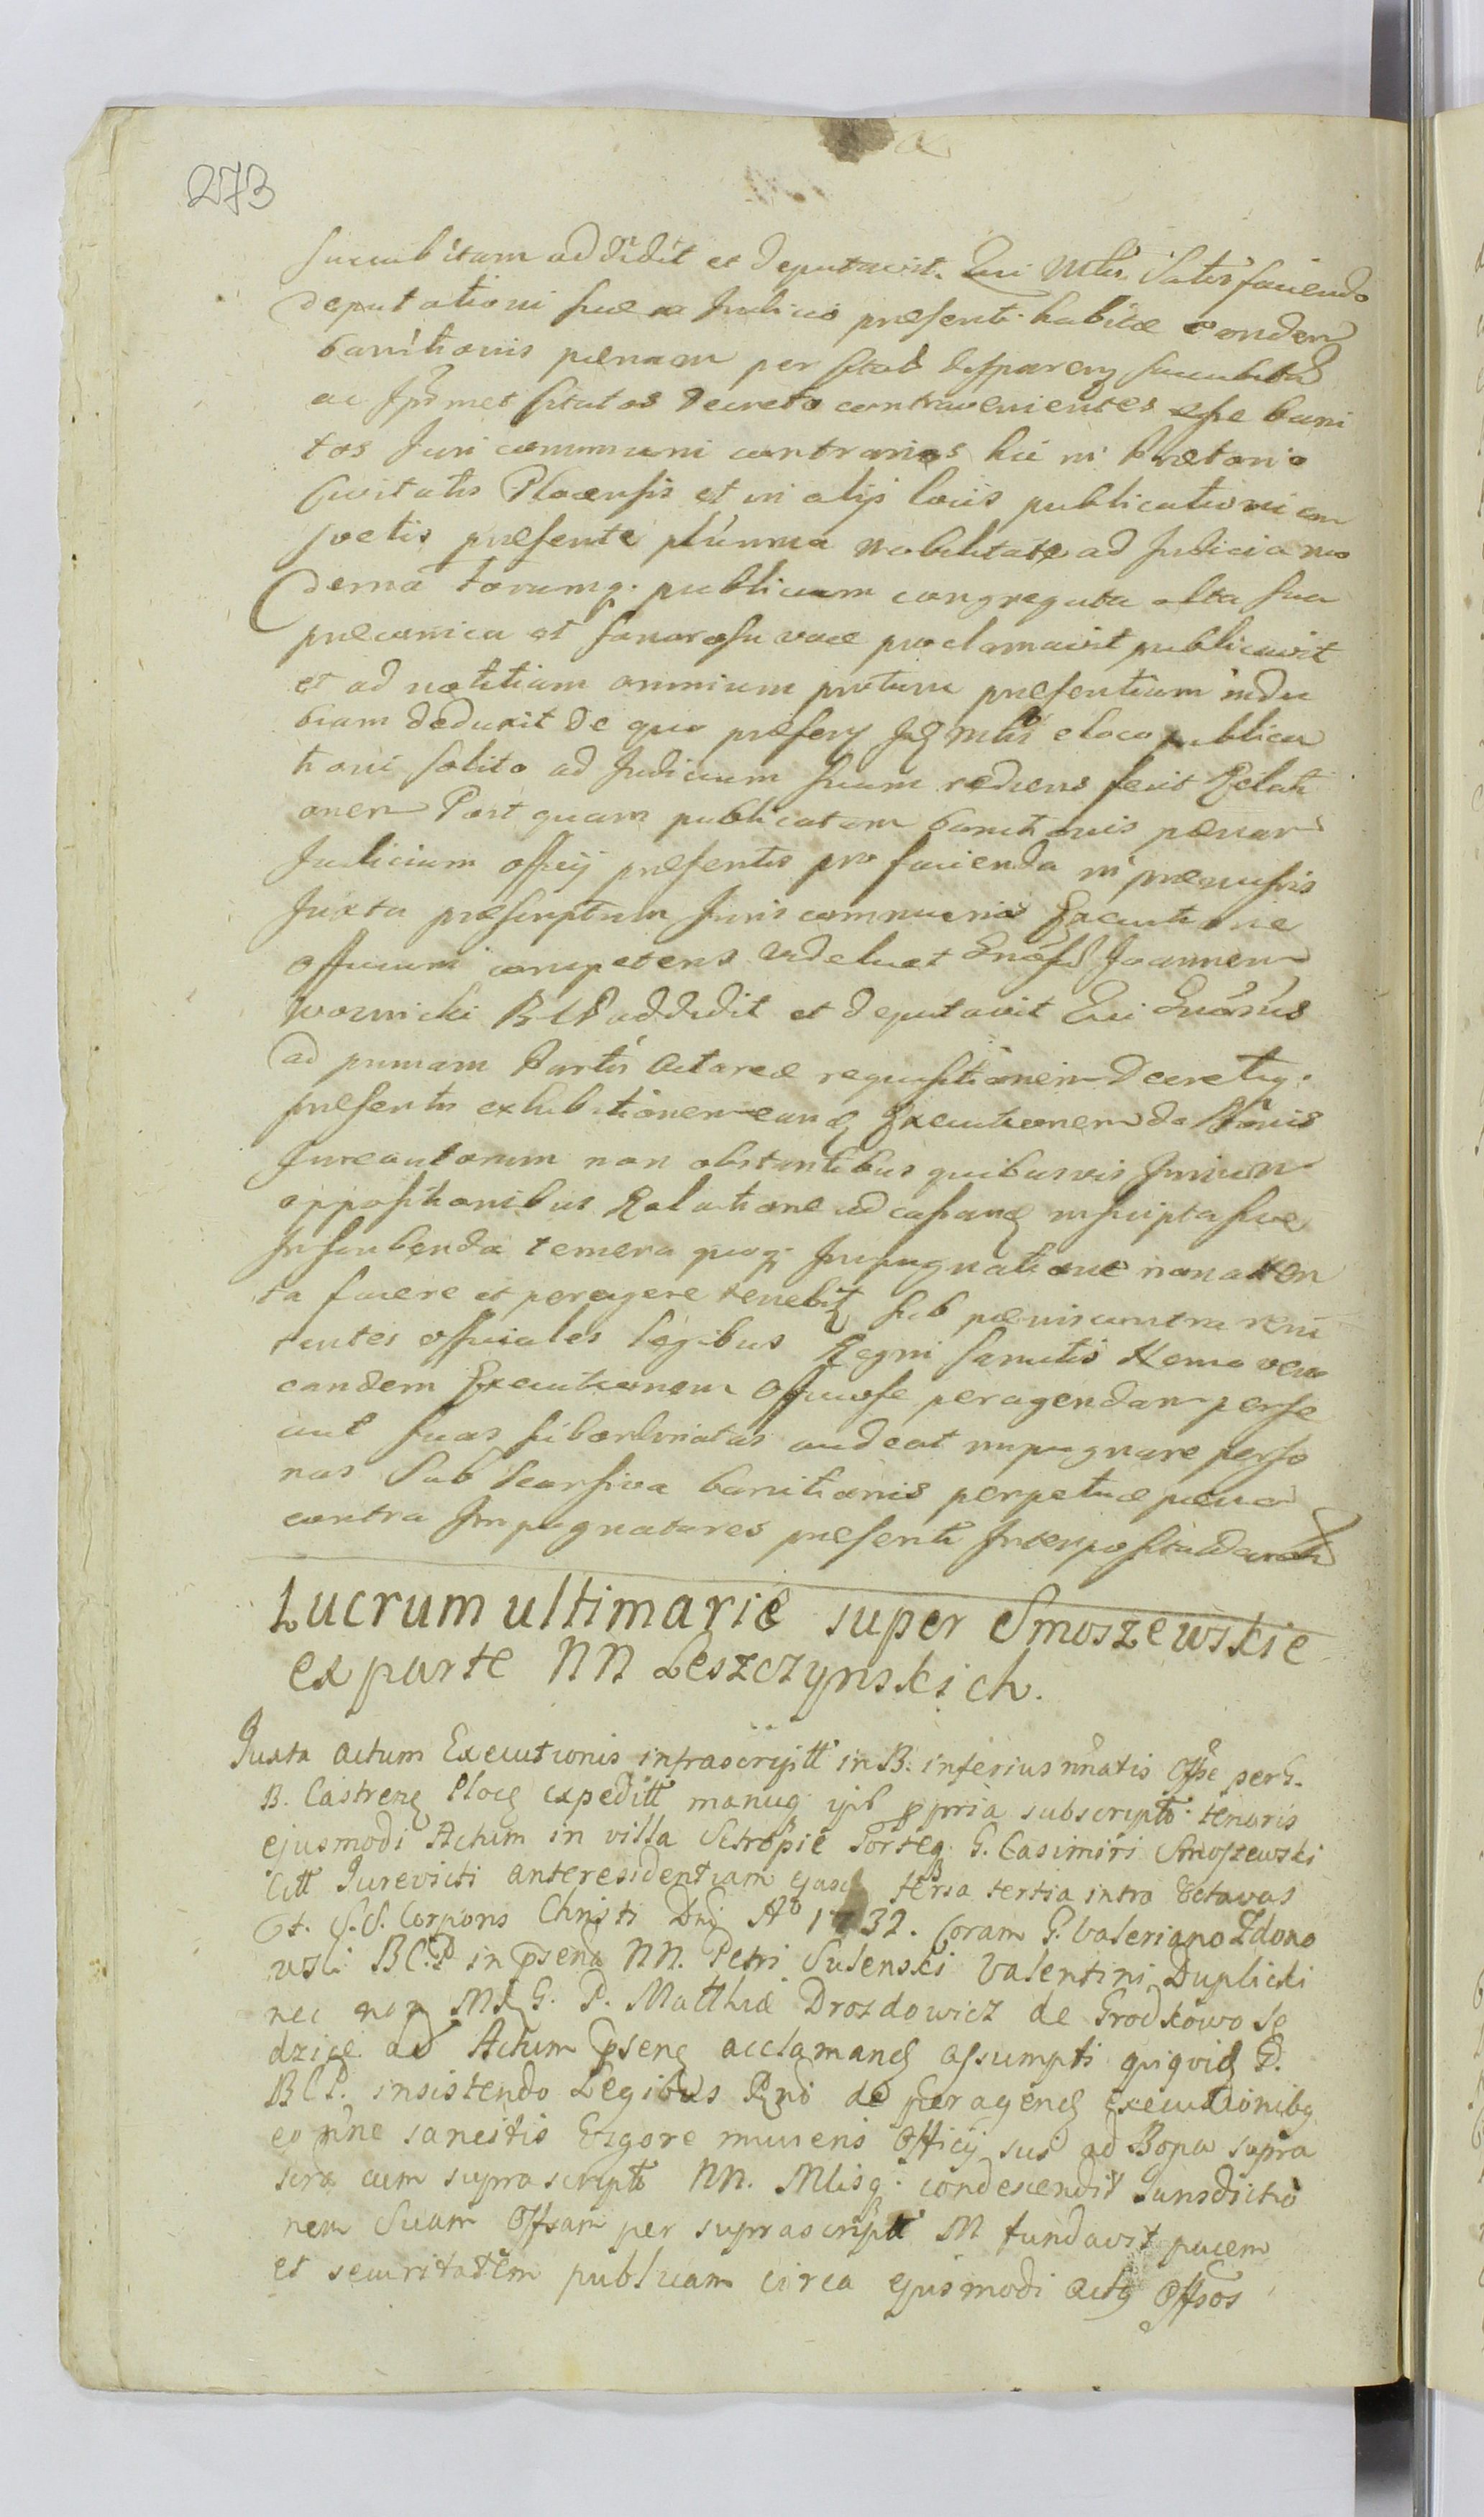 273
succubitam addidit et deputavit. Qui Mlis Satisfaciendo
deputationi suæ a Judicio præsenti habitæ eandem
banitionis pænam per citat succubitã
ac Ipsmet citatos Decreto contravenientes esse bani
tos Juri communi contrarios hic in Prætorio
Civitatis Plocensis et in alijs locis publicationi con
svetis præsente plurima nobilitate ad Judicia mo
derna forumq. publicum congregata alta sua
præconica et sonorosa voce proclamavit publicavit
et ad notitiam omnium protunc præsentium indu
biam deduxit De quo Mlis e loco publica
tioni solito ad Judicium suum rediens fecit Relati
onem Post quam publicatam banitionis pænam
Judicium officij præsentis pro facienda in præmissis
Juxta præscriptum Juris communis Executione
officium competens videlicet Joannem
Woznicki BCP addidit et deputavit Qui
ad primam Partis Actoreæ requisitionem Decretiq.
præsentis exhibitionem eand Executionem de Bonis
Jurevictorum non obstantibus quibusvis Jurium
oppositionibus Relatione ad inscripta sive
Inscribenda temera quoq. Impugnatione non atten
ta facere et peragere tenebit sub pænis contra reni
tentes officiales legibus Regni sancitis Nemo vero
eandem Executionem Officiose peragendam per se
aut suas subordinatas audeat impugnare perso
nas Sub banitionis perpetuæ pæna
contra Impugnatores præsenti Interposita decreto
Lucrum ultimarie super Smoszewskie
ex parte NN Leszczynskich.
Juxta actum Executionis infrascriptt in B. inferius nnatis Offse per G.
B. Castrens Ploc expeditt manuq ppria subscripto tenoris
ejusmodi Actum in villa Setropie Sorteq G. Casimiri Smoszewski
Citt Jurevicti ante residentiam ejusd feria tertia intra Octavas
St. S.S. Corporis Christi Dni Aº 1732. Coram G. Valeriano Zdono
wski BC.P in psentia NN. Petri Sulenski Valentini Duplicki
nec non Mls G. P. Matthiæ Drozdowicz de Grodkowo Se
dzice ad Actum psens acclamand assumpti quiquid G.
BCP. insistendo Legibus Rni de peragend Executionibq
eo nne sancitis Vigore muneris Officij sui ad Bona supra
scra cum suprascripto NN. Mlisq. condescendit Jurisdictio
nem Suam Offsam per suprascriptt M fundavit pacem
et securitatem publicam circa ejusmodi actq Offsos